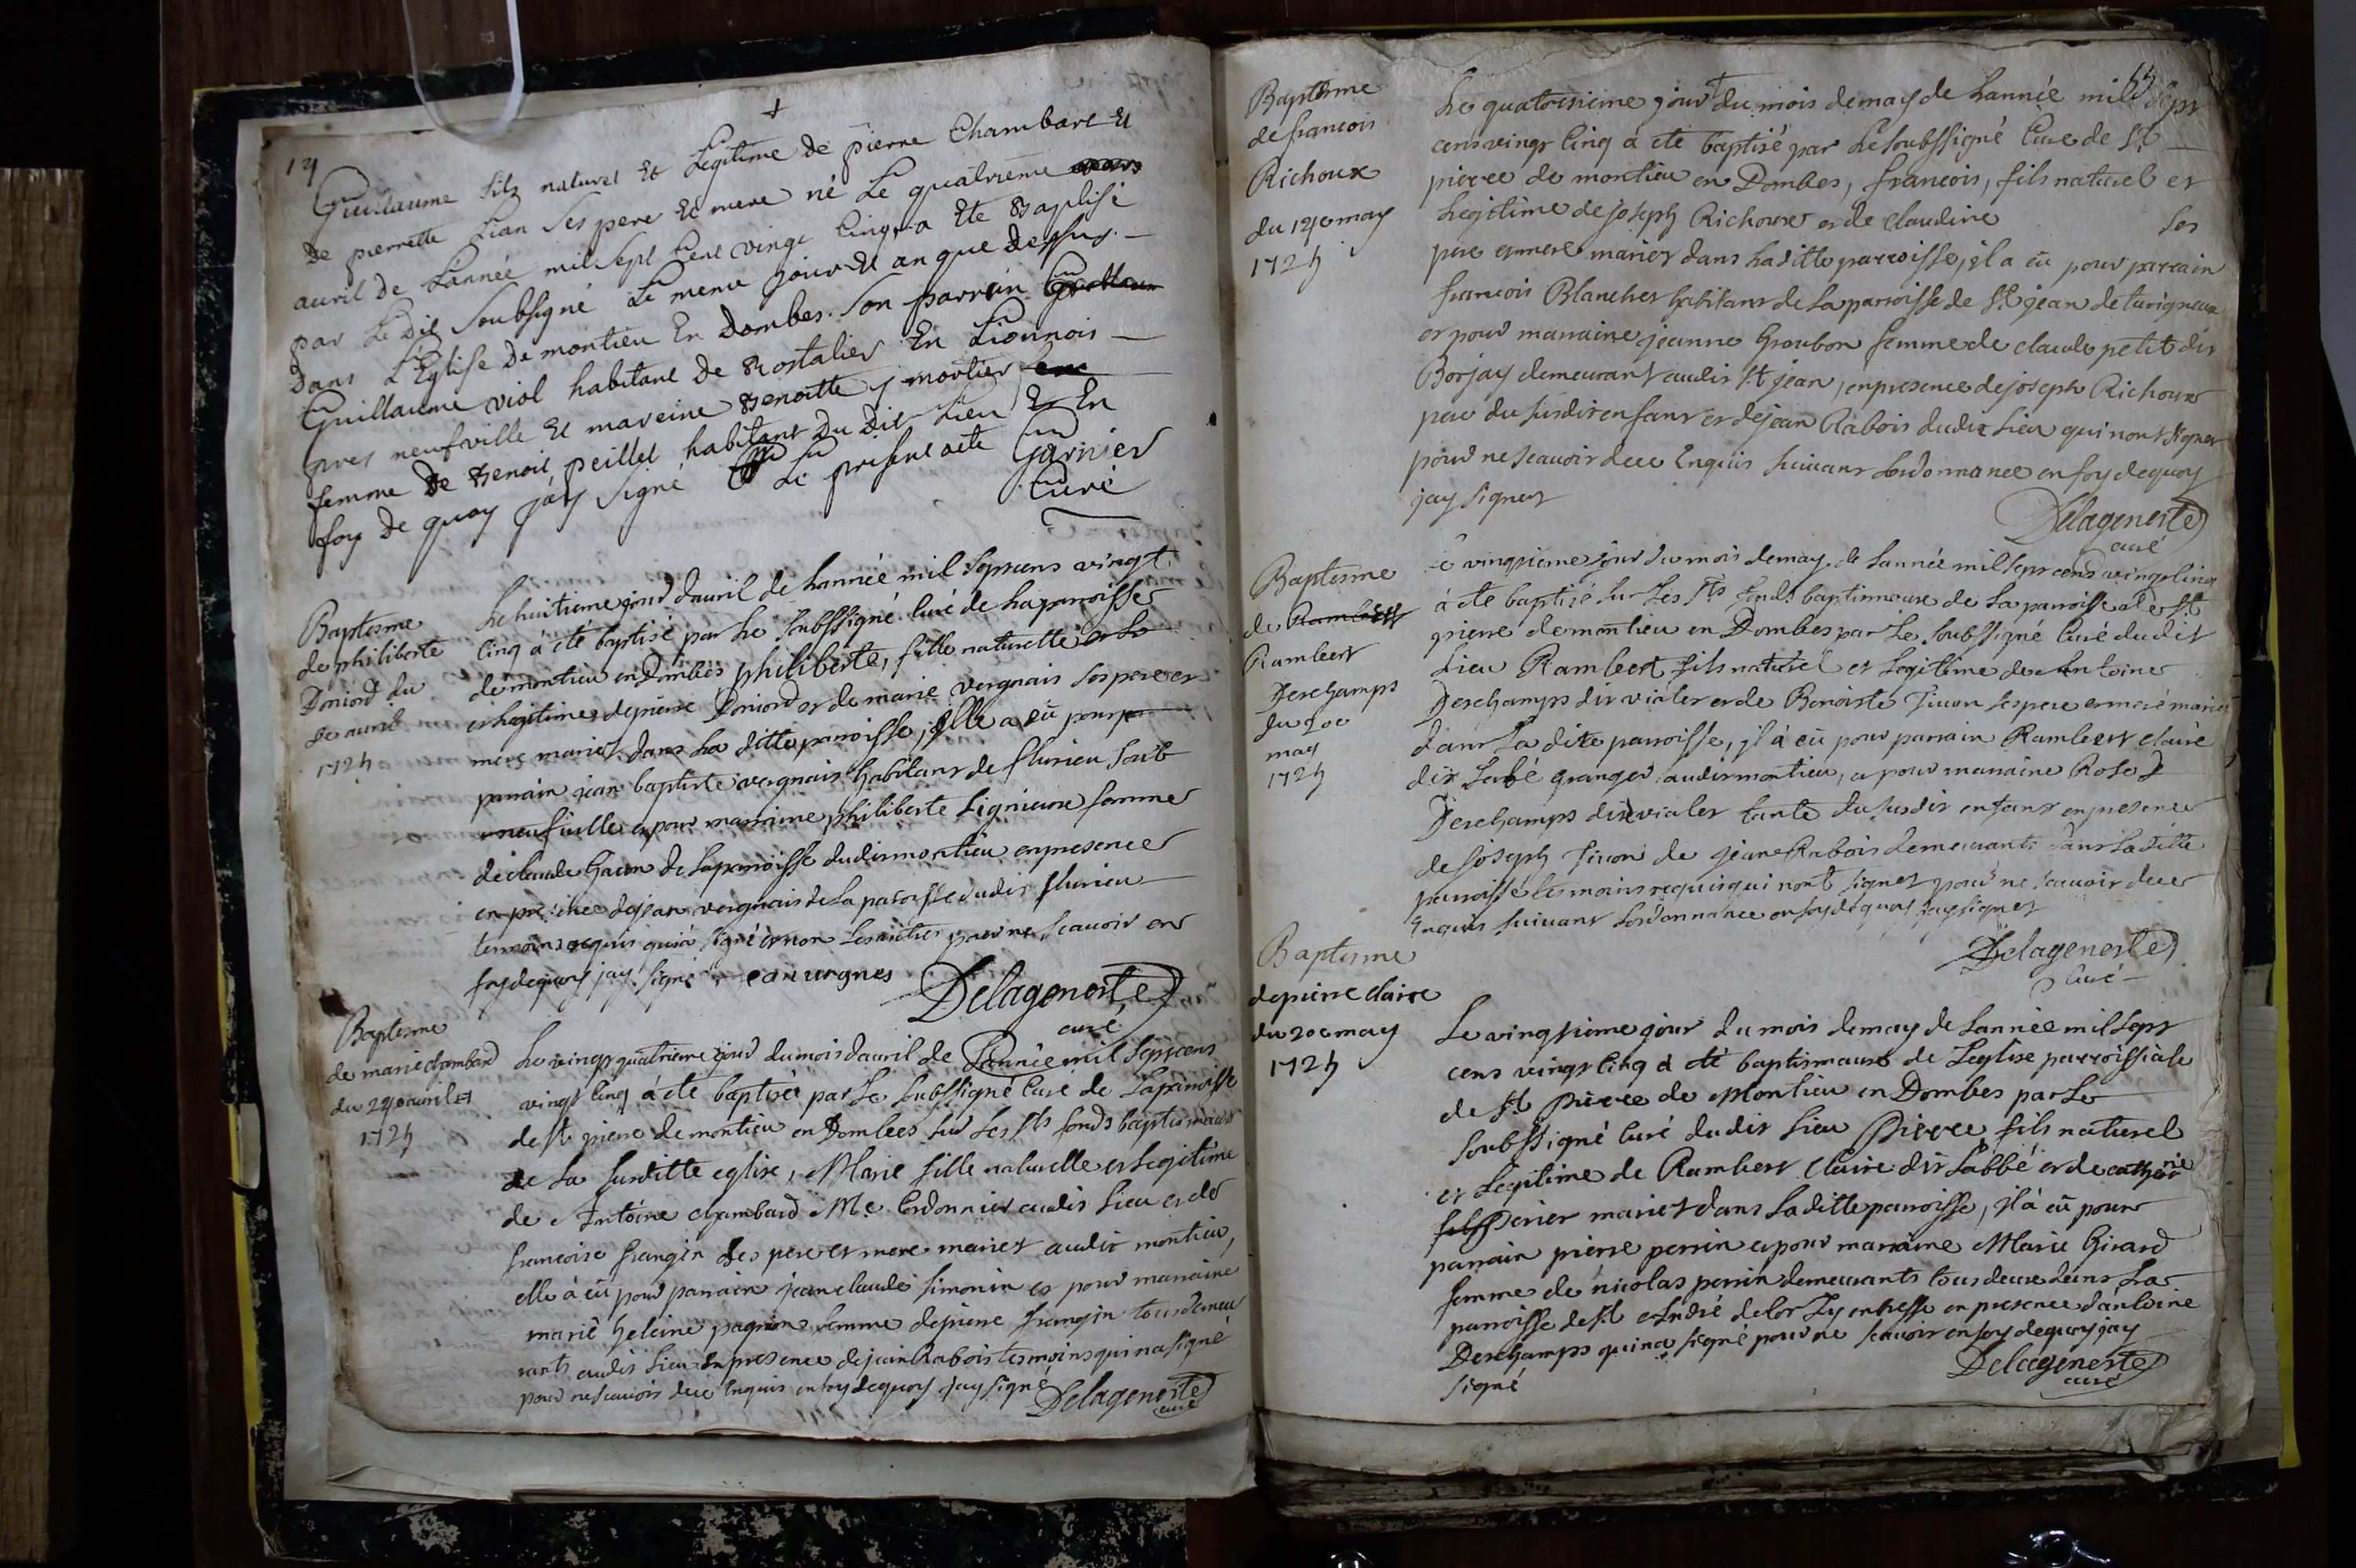 14
+
Guillaume fils naturel Et Legitime de pierre Chambare Et
de pierrette Lian Ses pere Et mere né Le quatrieme
auril de Lannée mil Sept Cent vingt Cinq, a Ete Baptisé
par Le Dit Soubsigné Le meme jour Et an que dessus. —
Dans L'Eglise de montieu En Dombes. Son parrein
Guillaume viol habitant de Rostalier En Lionnois —
pres neufville Et mareine Benoitte j montier
femme de Benoit peillet habitant Du Dit Lieu & En
foy de quoy jay Signé Le present acte Garnier
Curé
Baptesme
de philiberte
Doniond du
8e auril
1725
Le huitieme jour dauril de Lannée mil Septcens vingt
Cinq à eté baptisé par Le Soubssigné Curé de La parroisse
de montieu en Dombes philiberte, fille naturelle et Le
et Legitime de pierre Doniond et de marie vergnais Ses pere et
mere mariez dans La ditte parroisse, Elle a eû pour par
parrain jean baptiste vergnais habitant de flurieu Sorb
neufuille et pour marraine philiberte Lignieure femme
de claude Gacon de La parroisse dudit montieu en presence
en presence de jean vergnais de La paroisse dudit flurieu
temoins requis qui a signé et non Les autres pour ne Scauoir en
foy de quoy jay Signé Delagenerte
curé
Baptesme
de marie chambard
du 24e auril
1725
Le vingt quatrieme jour du mois dauril de Lannée mil Sept cens
vingt Cinq à eté baptisée par Le Soubssigné Curé de La parroisse
de St. pierre de montieu en Dombes Sur Les Sts fonds baptismaux
de La Surditte eglise, Marie fille naturelle et Legitime
de Antoine chambard Me. Cordonnier audit Lieu et de
francoise frangin Ses pere et mere mariez audit montieu,
elle à eû pour parrain jean claude Simonin et pour marraine
marie heleine pagnon femme de pierre frangin tous demeu
rants audit Lieu en presence de jean Rabois tesmoins qui na signé
pour ne Scauoir de ce Enquis en foy de quoy jay signé Delagenerte
curé
Baptesme
de francois
Richoux
du 14e may
1725
Le quatorsieme jour du mois de may de Lannée mil Sept
cens vingt Cinq à eté baptisé par Le Soubssigné Cure de St.
pierre de montieu en Dombes, francois, fils naturel et
Legitime de joseph Richoux et de Claudine Ses
pere et mere mariez dans La ditte parroisse, il a eû pour parrain
francois Blanchet habitant de La parroisse de St jean de turigneux
et pour marraine jeanne Groubon femme de claude petit dit
Borjay demeurant audit St jean, en presence de joseph Richoux
pere du Susdit enfant et de jean Rabois dudit Lieu qui nont signer
pour ne Scauoir de ce Enquis Suivant Lordonnance en foy de quoy
jay signer
Delagenerte
curé
Baptesme
de Rambert
Rambert
Deschamps
du 20e
may
1725
Le vingtieme jour du mois de may de Lannée mil Sept cens vingt Cinq
à eté baptisé Sur Les Sts fonds baptismaux de La parroisse de St
pierre de montieu en Dombes par Le Soubssigné Curé dudit
Lieu Rambert fils naturel et Legitime de Antoine
Deschamps dit vialer et de Benoiste Tiuon Ses pere et mere mariez
dans La dite parroisse, jl à eû pour parrain Rambert claire
dit Labé granger audit montieu, et pour marraine Rose D
Deschamps dit vialer tante du Susdit enfant en presence
de joseph Tiuon de jean Rabois demeurants dans La ditte
parroisse tesmoins requis qui nont signer pour ne Scauoir de ce
Enquis Suivant Lordonnance en foy de quoy jay signer
Delagenerte
Curé
Baptesme
de pierre claire
du 20e may
1725
Le vingtieme jour du mois de may de Lannée mil Sept
cens vingt Cinq à eté baptismaux de Leglise parroissiale
de St. Pierre de Montieu en Dombes par Le
Soubssigné Curé dudit Lieu Pierre, fils naturel
et Legitime de Rambert Claire dit Labbé et de catherine
fils Perier mariez dans La ditte parroisse, il à eû pour
parrain pierre perrin et pour marraine Marie Girard
femme de nicolas perrin demeurants tous deux dans La
parroisse de St André de Corzy en bresse en presence dantoine
Deschamps qui na signé pour ne Scauoir en foy de quoy jay
signé
Delagenerte
curé